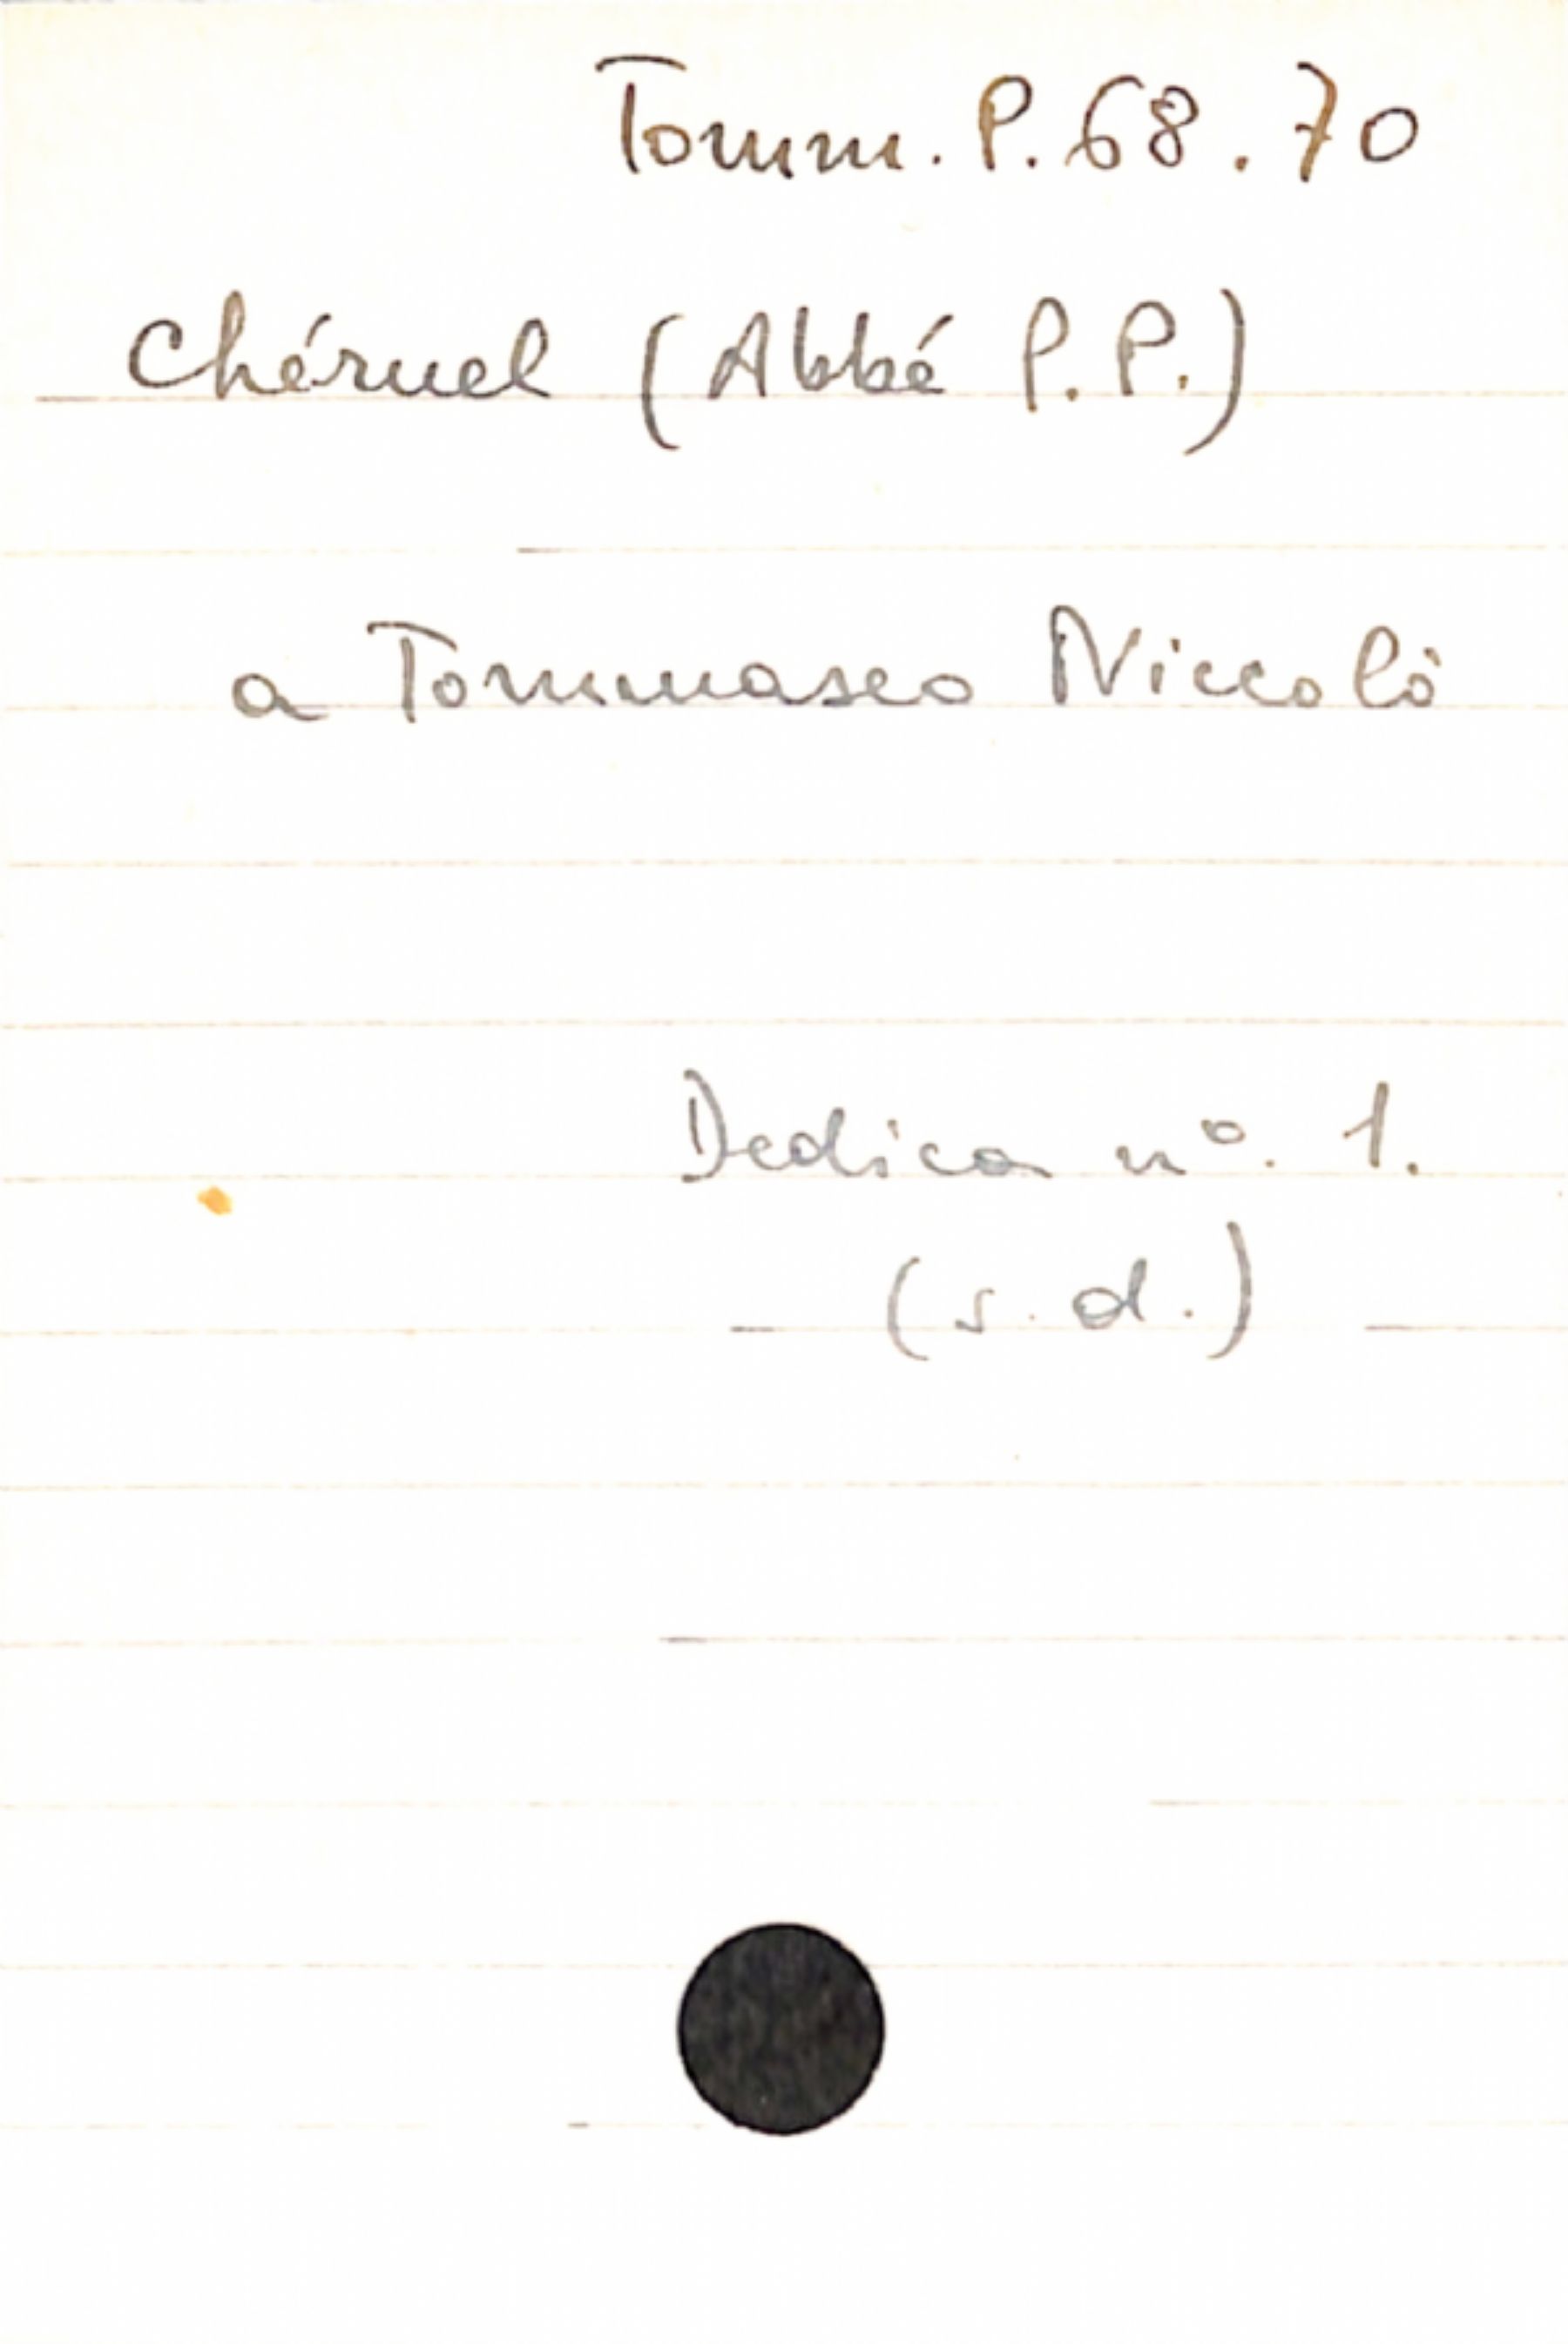 Tomm. P. 68. 70
Chéruel (Abbé P. P.)
a Tommaseo Niccolò
Dedica nº. 1.
(s. d.)